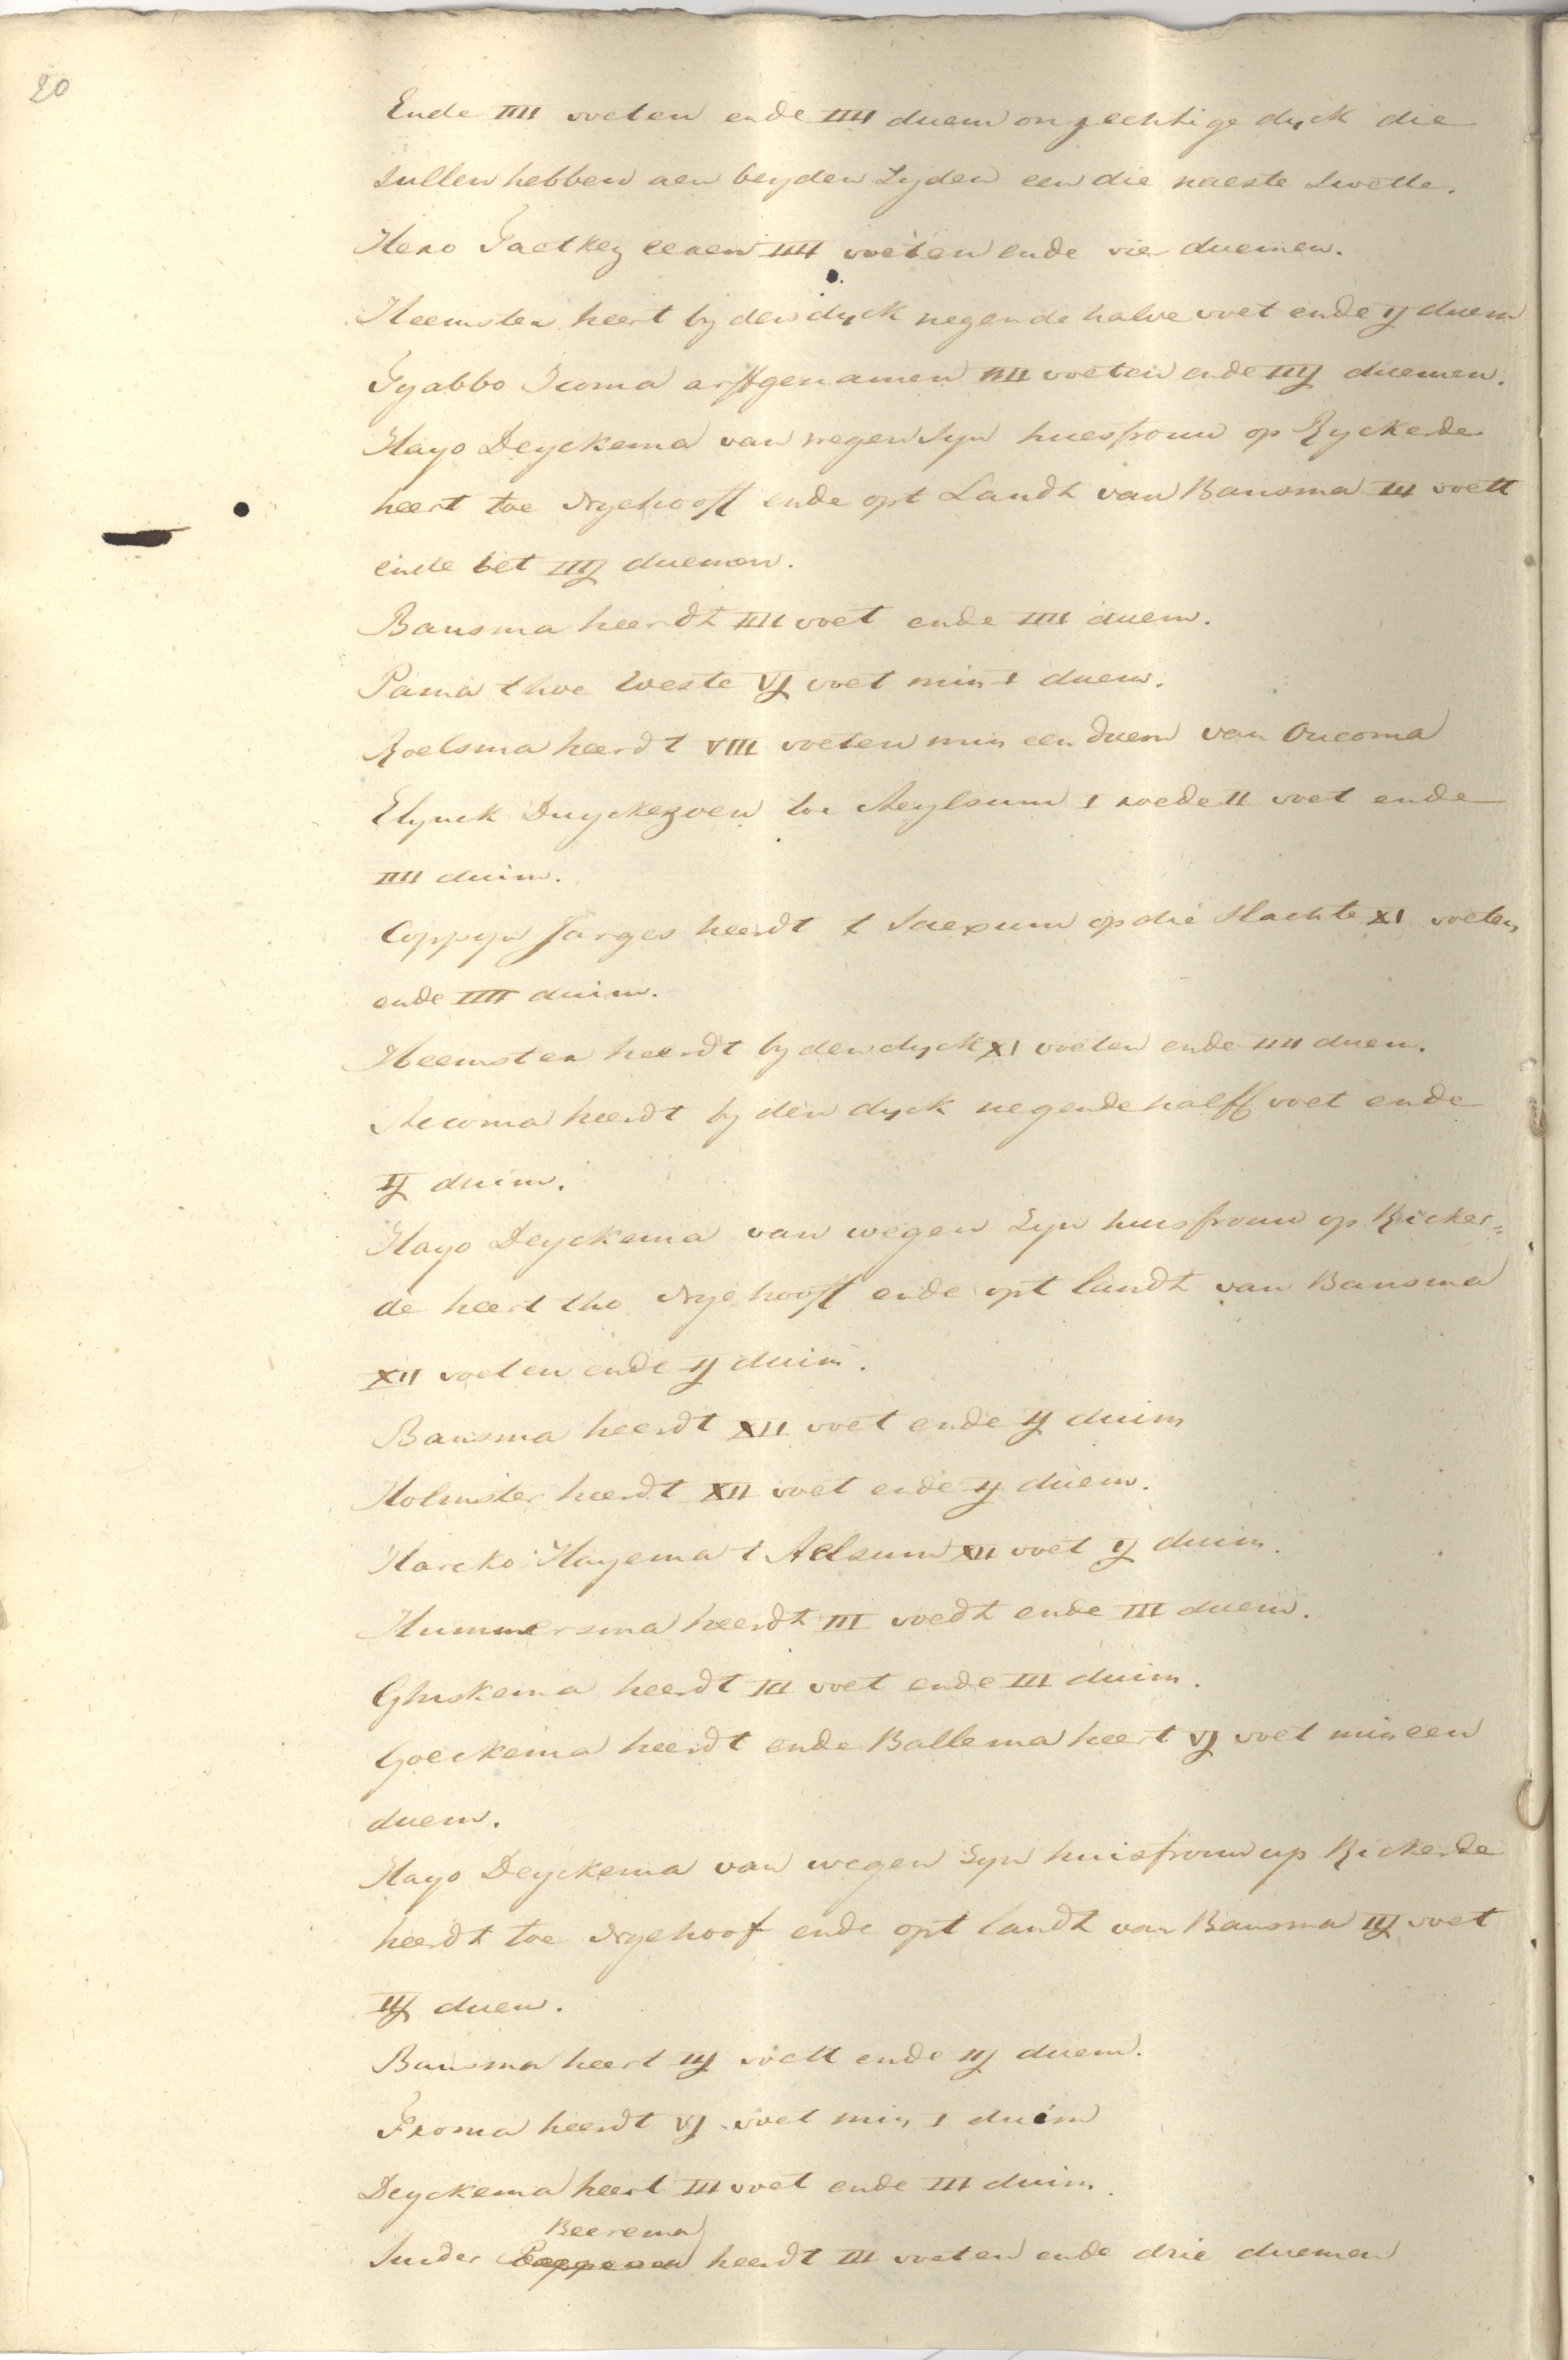 20
Ende IIII voeten ende IIII duem onzechtige dyck die
sullen hebben aen beyden zyden een die naeste swette.
Hero Faelkez eenen IIII voeten ende vier duemen.
Heemster heert by den dyck negende halve voet ende IJ duem
Tyabbo Icoma arffgenamen XII voeten ende IIIJ duemen.
Hayo Deyckema van wegen syn huesfrouw op Ryckerde
heert toe Nyehooff ende opt Landt van Bansma III voett
ende bet IIIJ duemen.
Bansma heerdt IIII voet ende IIII duem.
Pama thoe Weste VJ voet min I duem.
Roelsma heerdt VIII voeten min een duem van Oucoma
Elynck Duyckezoen toe Aeylsum I roede II voet ende
IIII duim.
Coppyn Jarges heerdt t Saexum op die Slachte XI voeten
ende IIII duim.
Heemster heerdt by den dyck XI voeten ende IIII duem.
Aecoma heerdt by den dyck negende halff voet ende
IJ duim.
Hayo Deyckema van wegen Syn huusfrouw op Ricker=
de heert tho Nyehooff ende opt landt van Bansma
XII voeten ende IJ duim.
Bansma heerdt XII voet ende IJ duim
Holmster heerdt XII voet ende IJ duem.
Harcko Hayema t Aelsum XII voet IJ duim.
Hummersma heerdt III voedt ende III duem.
Ghuskema heerdt III voet ende III duim.
Goeckema heerdt ende Ballema heert VJ voet min een
duem.
Hayo Deyckema van wegen Syn huisfrouw up Rickerde
heerdt toe Nyehoof ende opt landt van Bansma IIJ voet
IIJ duem.
Bansma heert IIJ voett ende IIJ duem.
Froma heerdt VJ voet min I duim
Deyckema heert III voet ende III duim.
Beerema
Suider heerdt III voeten ende drie duemen